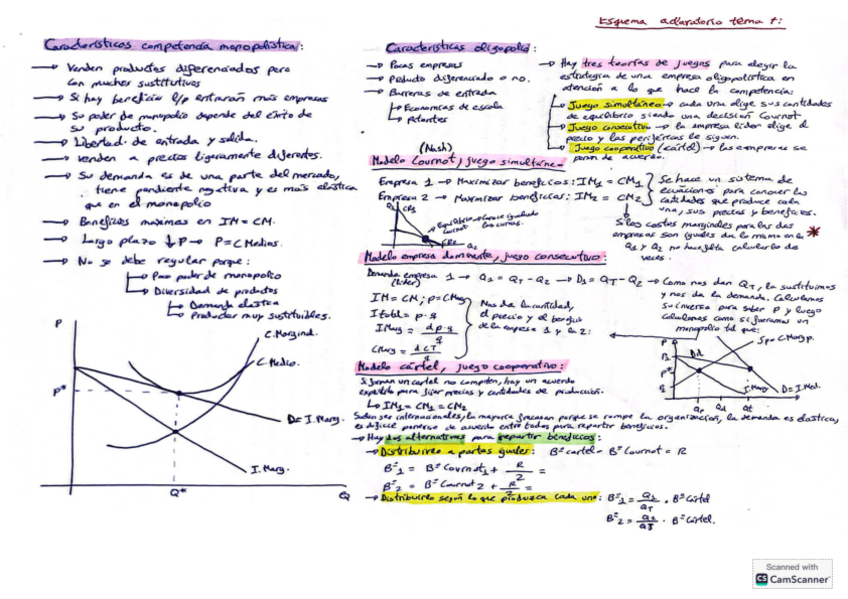 Esquema aclaratorio tema 1:
Características competencia monopolística:
→ Venden productos diferenciados pero
con muchos sustitutivos
→ Si hay beneficio l/p entrarán más empresas
→ Su poder de monopolio depende del éxito de
su producto.
→ Libertad de entrada y salida.
→ Venden a precios ligeramente diferentes.
→ Su demanda es de una parte del mercado,
tiene pendiente negativa y es más elástica
que en el monopolio
→ Beneficios máximos en IM = CM.
→ Largo plazo ↓P → P = CMedios.
→ No se debe regular porque:
→ Poco poder de monopolio
→ Diversidad de productos
→ Demanda elástica
→ Productos muy sustituibles.
P
C.Marginal.
C.Medio.
P*
D = I.Marg.
I.Marg.
Q*
Q
Características oligopolio:
→ Pocas empresas
→ Producto diferenciado o no.
→ Barreras de entrada
→ Economías de escala
→ Patentes
→ Hay tres teorías de juegos para elegir la
estrategia de una empresa oligopolística en
atención a lo que hace la competencia:
→ Juego simultáneo → cada una elige sus cantidades
de equilibrio siendo una decisión Cournot
→ Juego consecutivo → la empresa líder elige el
precio y las periféricas le siguen.
→ Juego cooperativo (cártel) → las empresas se
ponen de acuerdo.
(Nash)
Modelo Cournot, juego simultáneo
Empresa 1 → Maximizar beneficios: IM₁ = CM₁
Empresa 2 → Maximizar beneficios: IM₂ = CM₂
Se hace un sistema de
ecuaciones para conocer las
cantidades que produce cada
una, sus precios y beneficios.
Si los costes marginales para las dos
empresas son iguales
Q₁ y Q₂ no hace falta calcularlo dos
veces.
Modelo empresa dominante, juego consecutivo:
Demanda empresa 1 → Q₁ = QT - Q₂ → D₁ = QT - Q₂ → Como nos dan QT, la sustituimos
(líder)
y nos da la demanda. Calculamos
su inversa para saber P y luego
calculamos como si fuéramos un
monopolio tal que:
IM = CM; P = CMarg
Itotal = p · q
IMarg = dp·q / q
CMarg = dCT / q
Nos da la cantidad,
el precio y el beneficio
de la empresa 1 y la 2:
P
Sp = CMarg p.
Dd
P*
I.Marg
D = I.Med.
Modelo cártel, juego cooperativo:
Si forman un cártel no compiten, hay un acuerdo
explícito para fijar precios y cantidades de producción.
→ IM₁ = CM₁ = CM₂
Suelen ser internacionales, la mayoría fracasan porque se rompe la organización, la demanda es elástica,
es difícil ponerse de acuerdo entre todos para repartir beneficios.
→ Hay dos alternativas para repartir beneficios:
→ Distribuirlo a partes iguales: Bº cártel - Bº Cournot = R
Bº₁ = Bº Cournot₁ + R/2 =
Bº₂ = Bº Cournot 2 + R/2 =
→ Distribuirlo según lo que produzca cada uno: Bº₁ = Q₁/QT · Bº Cártel
Bº₂ = Q₂/QT · Bº Cártel.
Scanned with
CS CamScanner